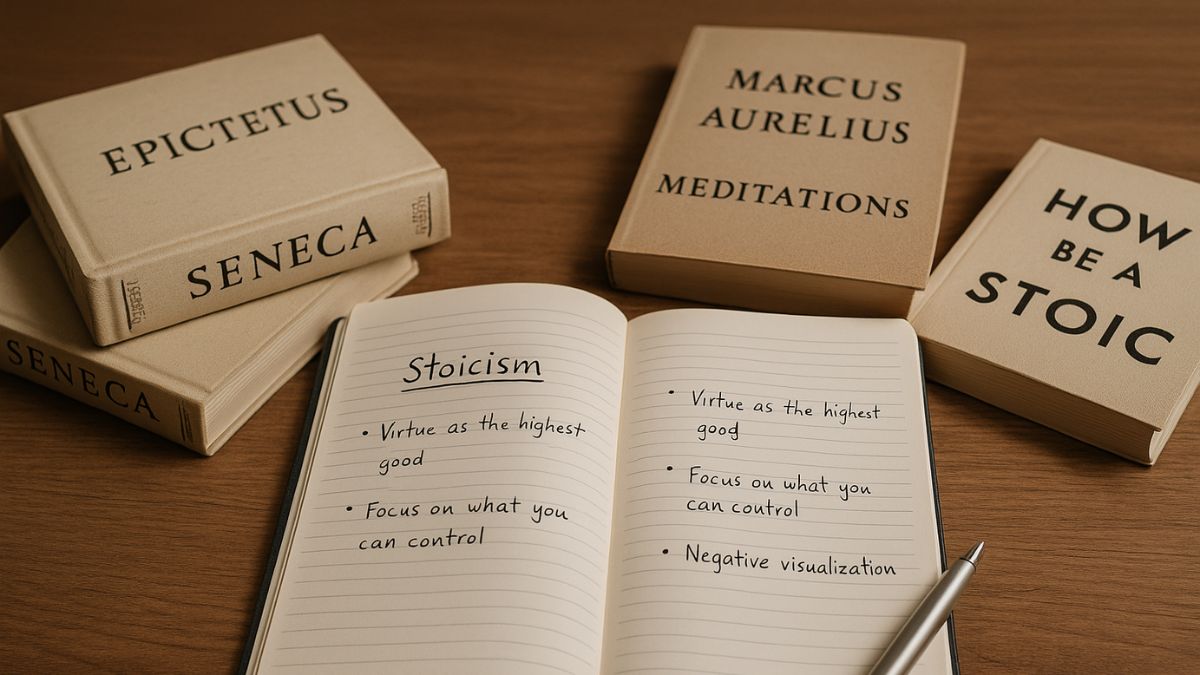 EPICTETUS
SENECA
SENECA
MARCUS
AURELIUS
MEDITATIONS
HOW
BE A
STOIC
Stoicism
• Virtue as the highest
good
• Focus on what you
can control
• Virtue as the highest
good
• Focus on what you
can control
• Negative visualization